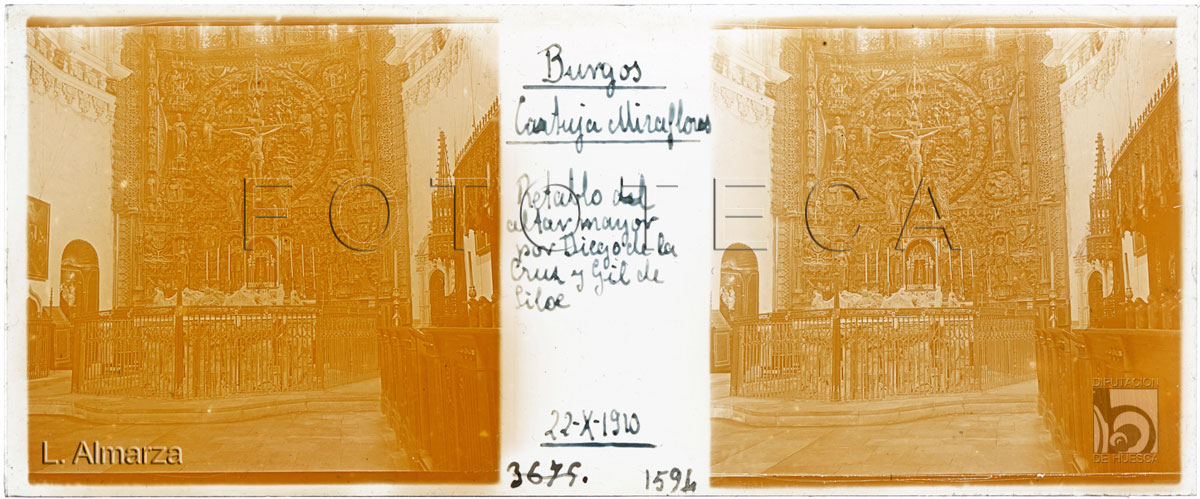 Burgos
Cartuja Miraflores
Retablo del
altar mayor
por Diego de la
Cruz y Gil de
Siloe
22-X-1910
3675. 1594
FOTOTECA
L. Almarza
DIPUTACIÓN
DE HUESCA